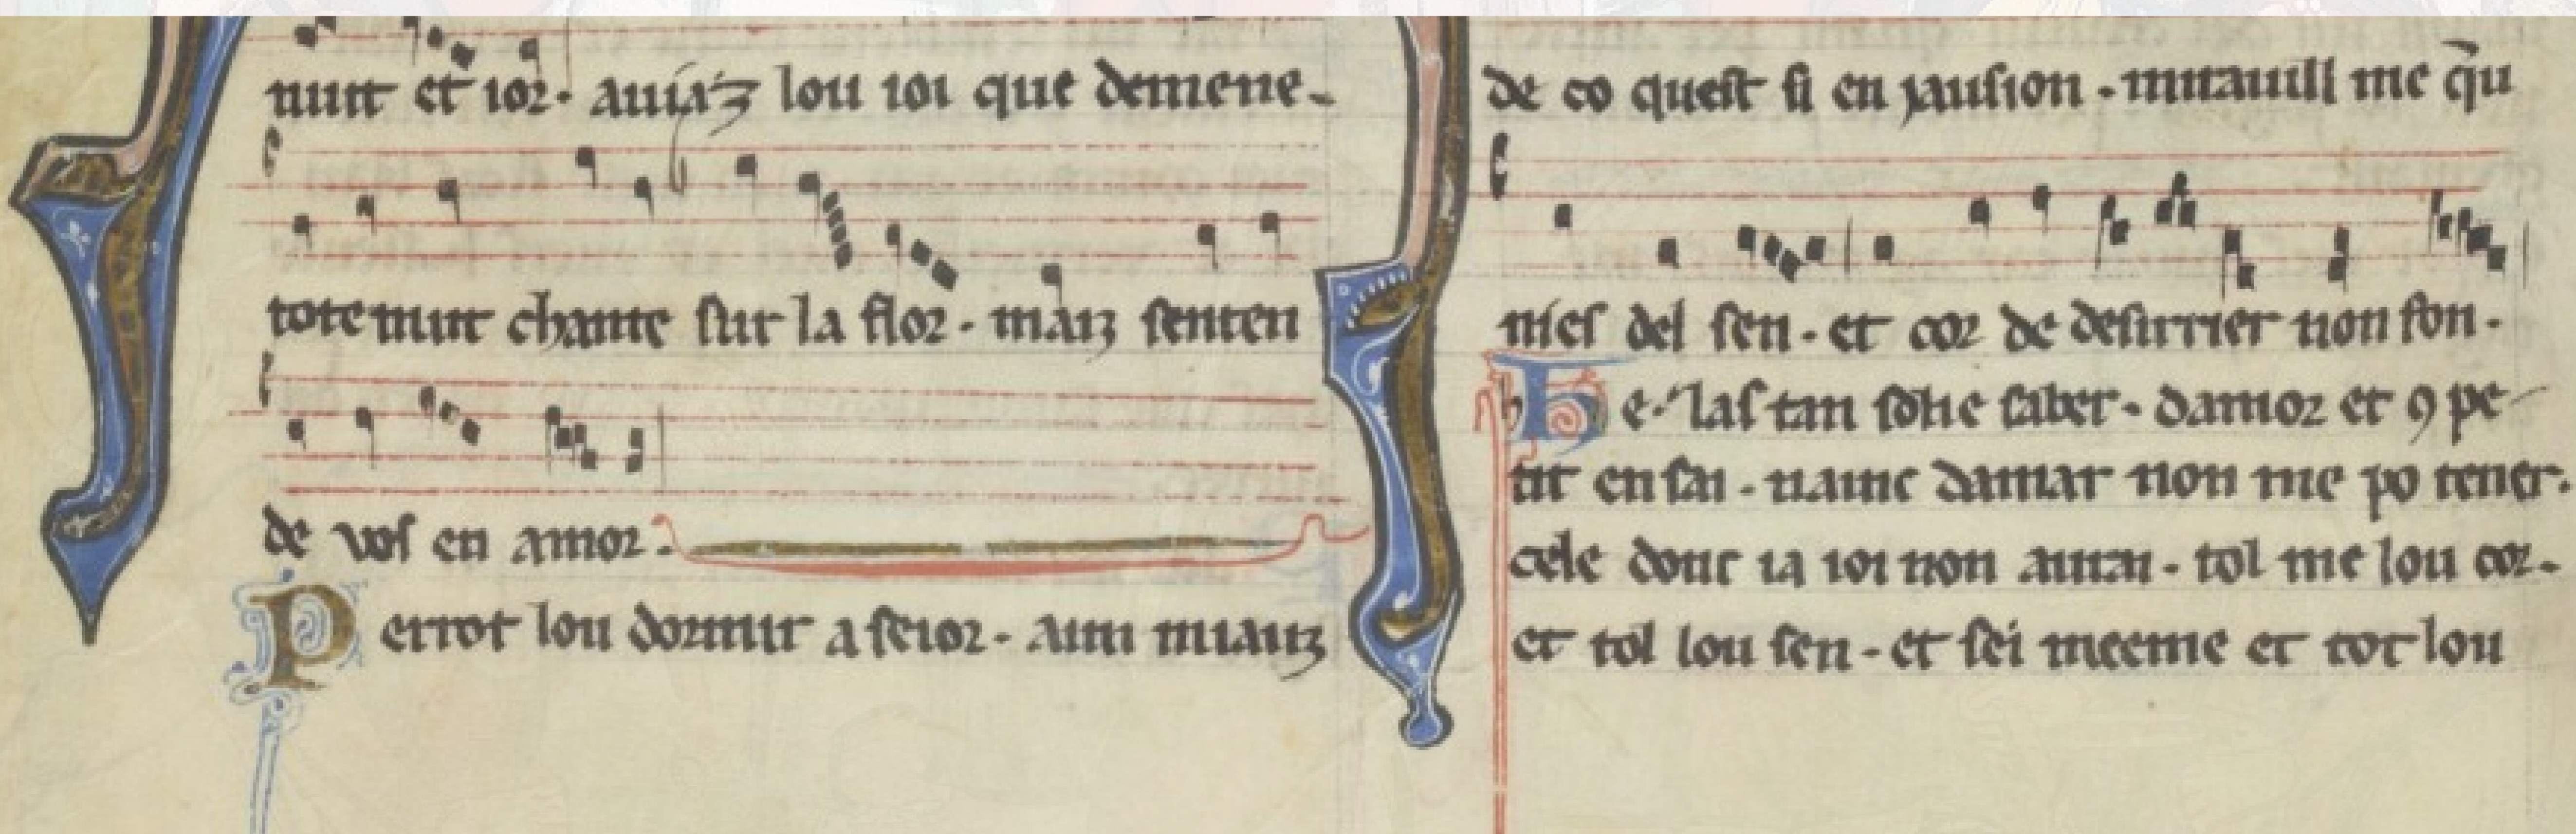 nuit et ior. auiaz lou ioi que demene
tote nuit chante sur la flor. maiz senten
de vos en amor.
Perrot lou dormir a seior. aim miauz
de co quest si en jausion. mirauill me q̄u
nies del sen. et cor de desirrier non fon.
He. las tan cohe saber. damor et ꝯ pe
tit en sai. nainc damar non me po tener.
cele dont ia ioi non aurai. tol me lou cor.
et tol lou sen. et sei meeme et tot lou